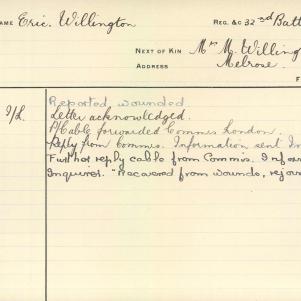 NAME Eric. Willington REG. &C 32nd Batt
NEXT OF KIN Mrs M. Willing
ADDRESS Melrose.
F
I/L. Reported wounded
Letter acknowledged.
P/Cable forwarded Commis London.
Reply from Commis. Information sent In
Further reply cable from Commis. Infor
Inquirer. "Recovered from wounds, rejoin